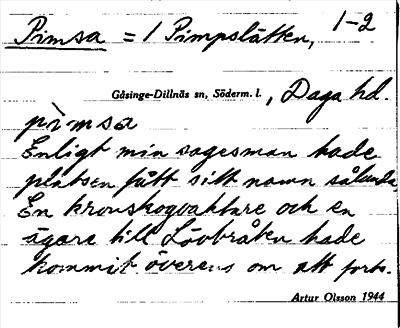 Pimsa = / Pimpslätten, 1-2
Gåsinge-Dillnäs sn, Söderm. l., Daga hd.
pìmsa
Enligt min sagesman hade
platsen fått sitt namn sålunda
En kronskogvaktare och en
ägare till Lövbråten hade
kommit överens om att forts.
Artur Olsson 1944